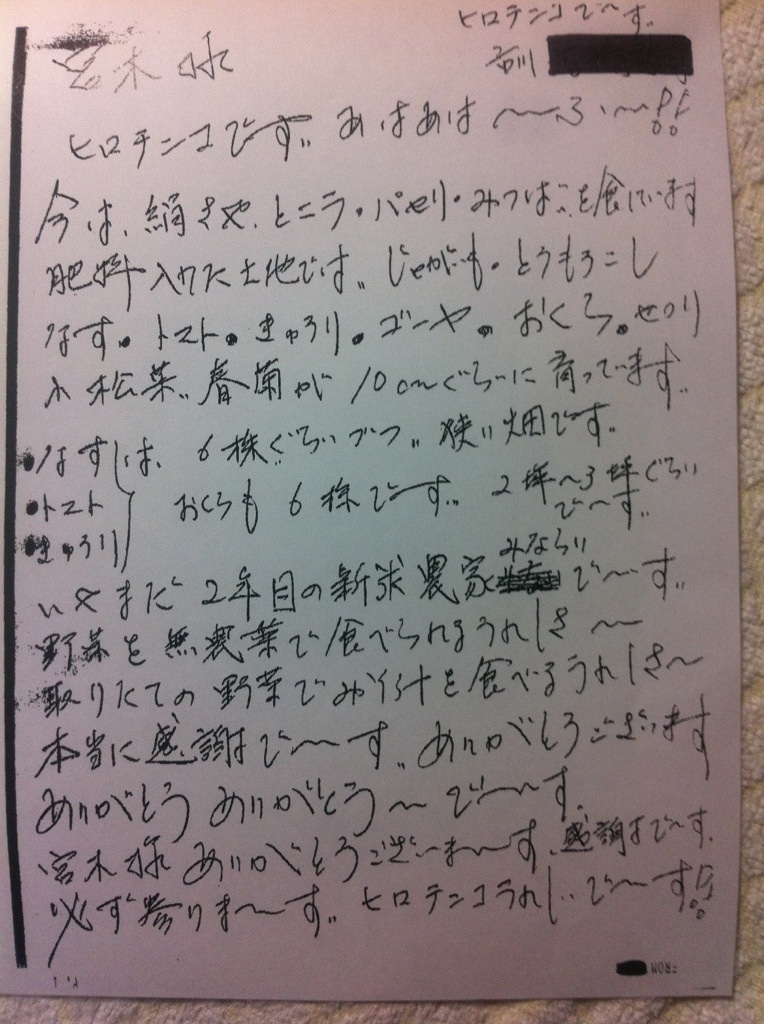 ヒロテンコで〜す。
宮本様
市川
ヒロテンコです。あはあは〜〜ふ〜〜!!
今は、絹さや、とニラ・パセリ・みつば、を食しています
肥料入りた土地です。じゃがいも・とうもろこし
なす。トマト。きゅうり。ゴーヤ。おくら。セロリ
小松菜、春菊が10cmぐらいに育っています。
・なす は、6株ぐらいづつ、狭い畑です。
・トマト おくらも6株です。2坪〜3坪ぐらい
・きゅうり で〜す。
みならい
いやまだ2年目の新米農家 で〜す。
野菜を無農薬で食べられるうれしさ〜
取りたての野菜でみそ汁を食べるうれしさ〜
本当に感謝で〜す。ありがとうございます
ありがとうありがとう〜で〜す。
宮本様ありがとうございま〜す。感謝で〜す。
必ず参りま〜す。ヒロテンコうれしいで〜す!!
FROM
P. 1